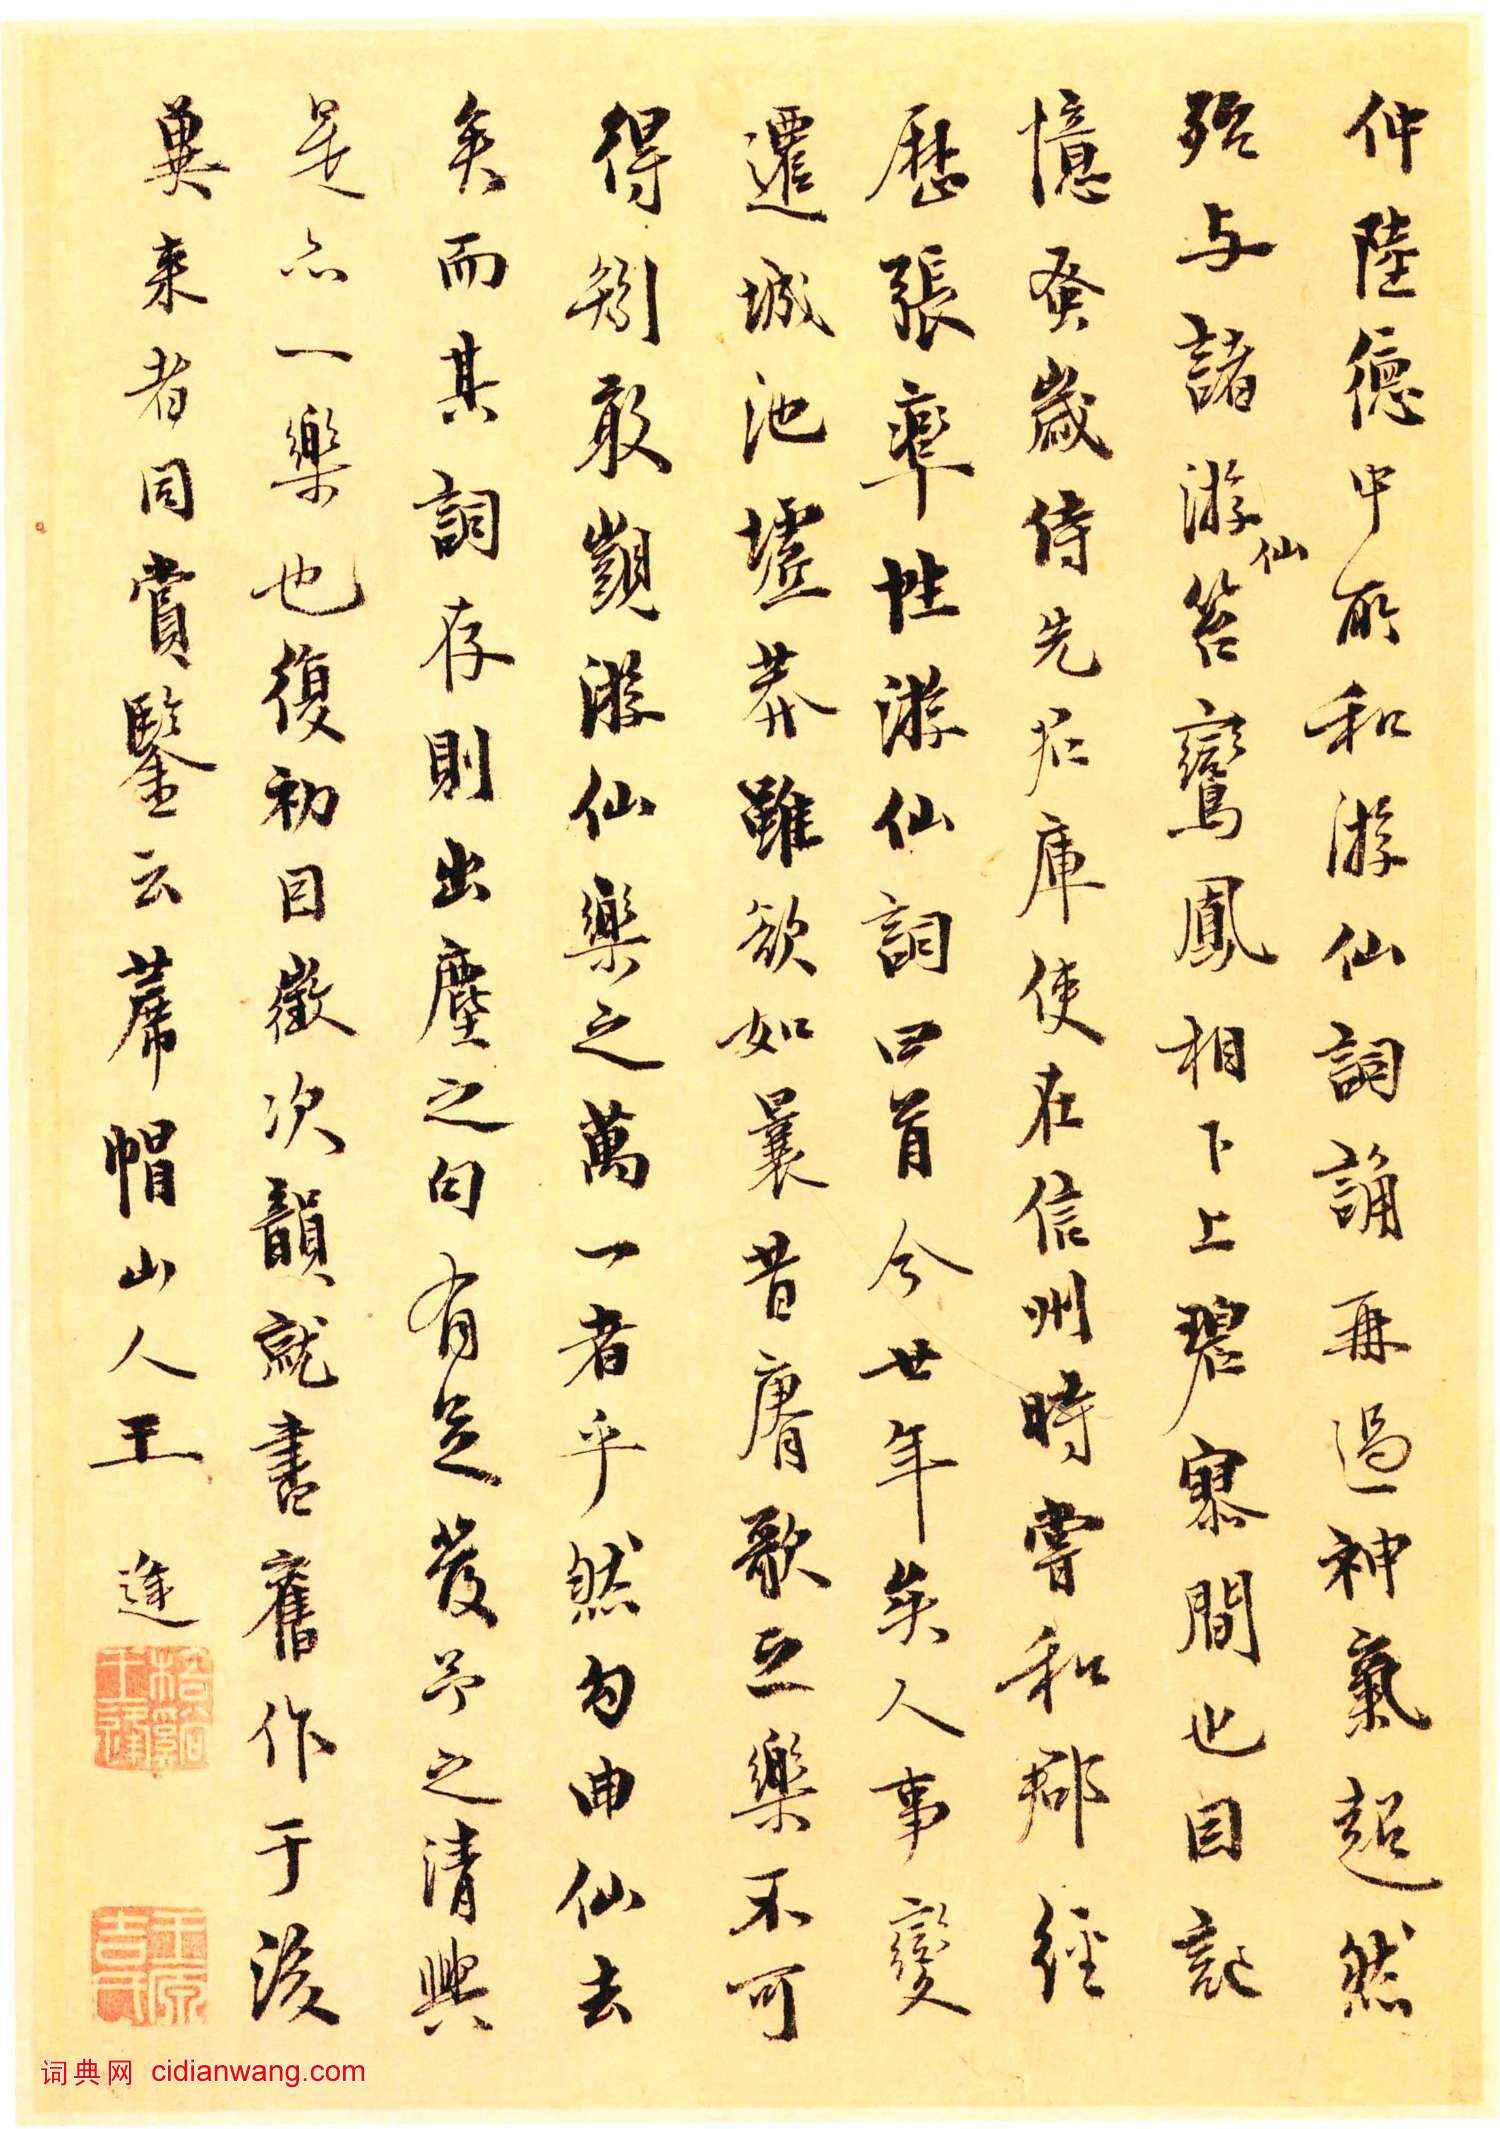 仲陸德中所和游仙詞誦再過神氣超然
殆与諸游仙
笞鸞鳳相下上碧寥間也因記
憶蚤歲侍先君庫使在信州時嘗和郡經
歷張率性游仙詞四首今廿年矣人事變
遷城池墟莽雖欲如曩昔賡歌之樂不可
得矧敢覬游仙樂之萬一者乎然勾曲仙去
矣而其詞存則出塵之句有足發予之清興
是亦一樂也復初因徵次韻就書舊作于後
冀来者同賞鑒云蓆帽山人王逢
词典网 cidianwang.com